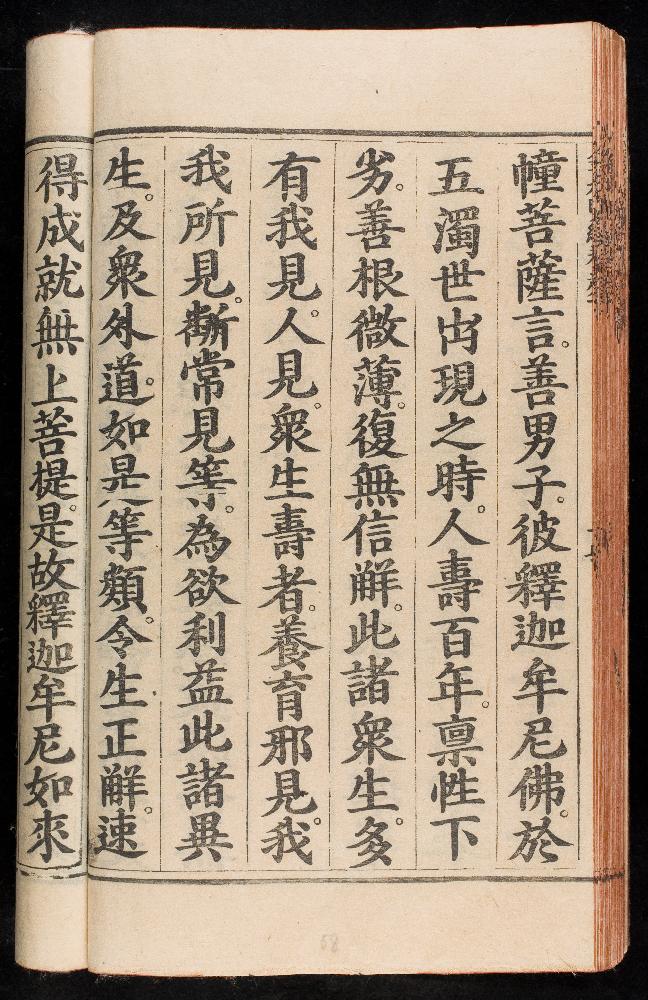 幢菩薩言。善男子。彼釋迦牟尼佛。於
五濁世出現之時。人壽百年。禀性下
劣。善根微薄。復無信解。此諸衆生。多
有我見。人見。衆生壽者。養育邪見。我
我所見。斷常見等。為欲利益此諸異
生。及衆外道。如是等類。令生正解。速
得成就無上菩提。是故釋迦牟尼如來
58